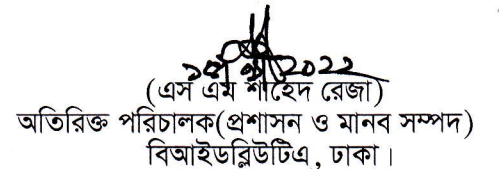 (এস এম শাহেদ রেজা)
অতিরিক্ত পরিচালক(প্রশাসন ও মানব সম্পদ)
বিআইডব্লিউটিএ, ঢাকা।